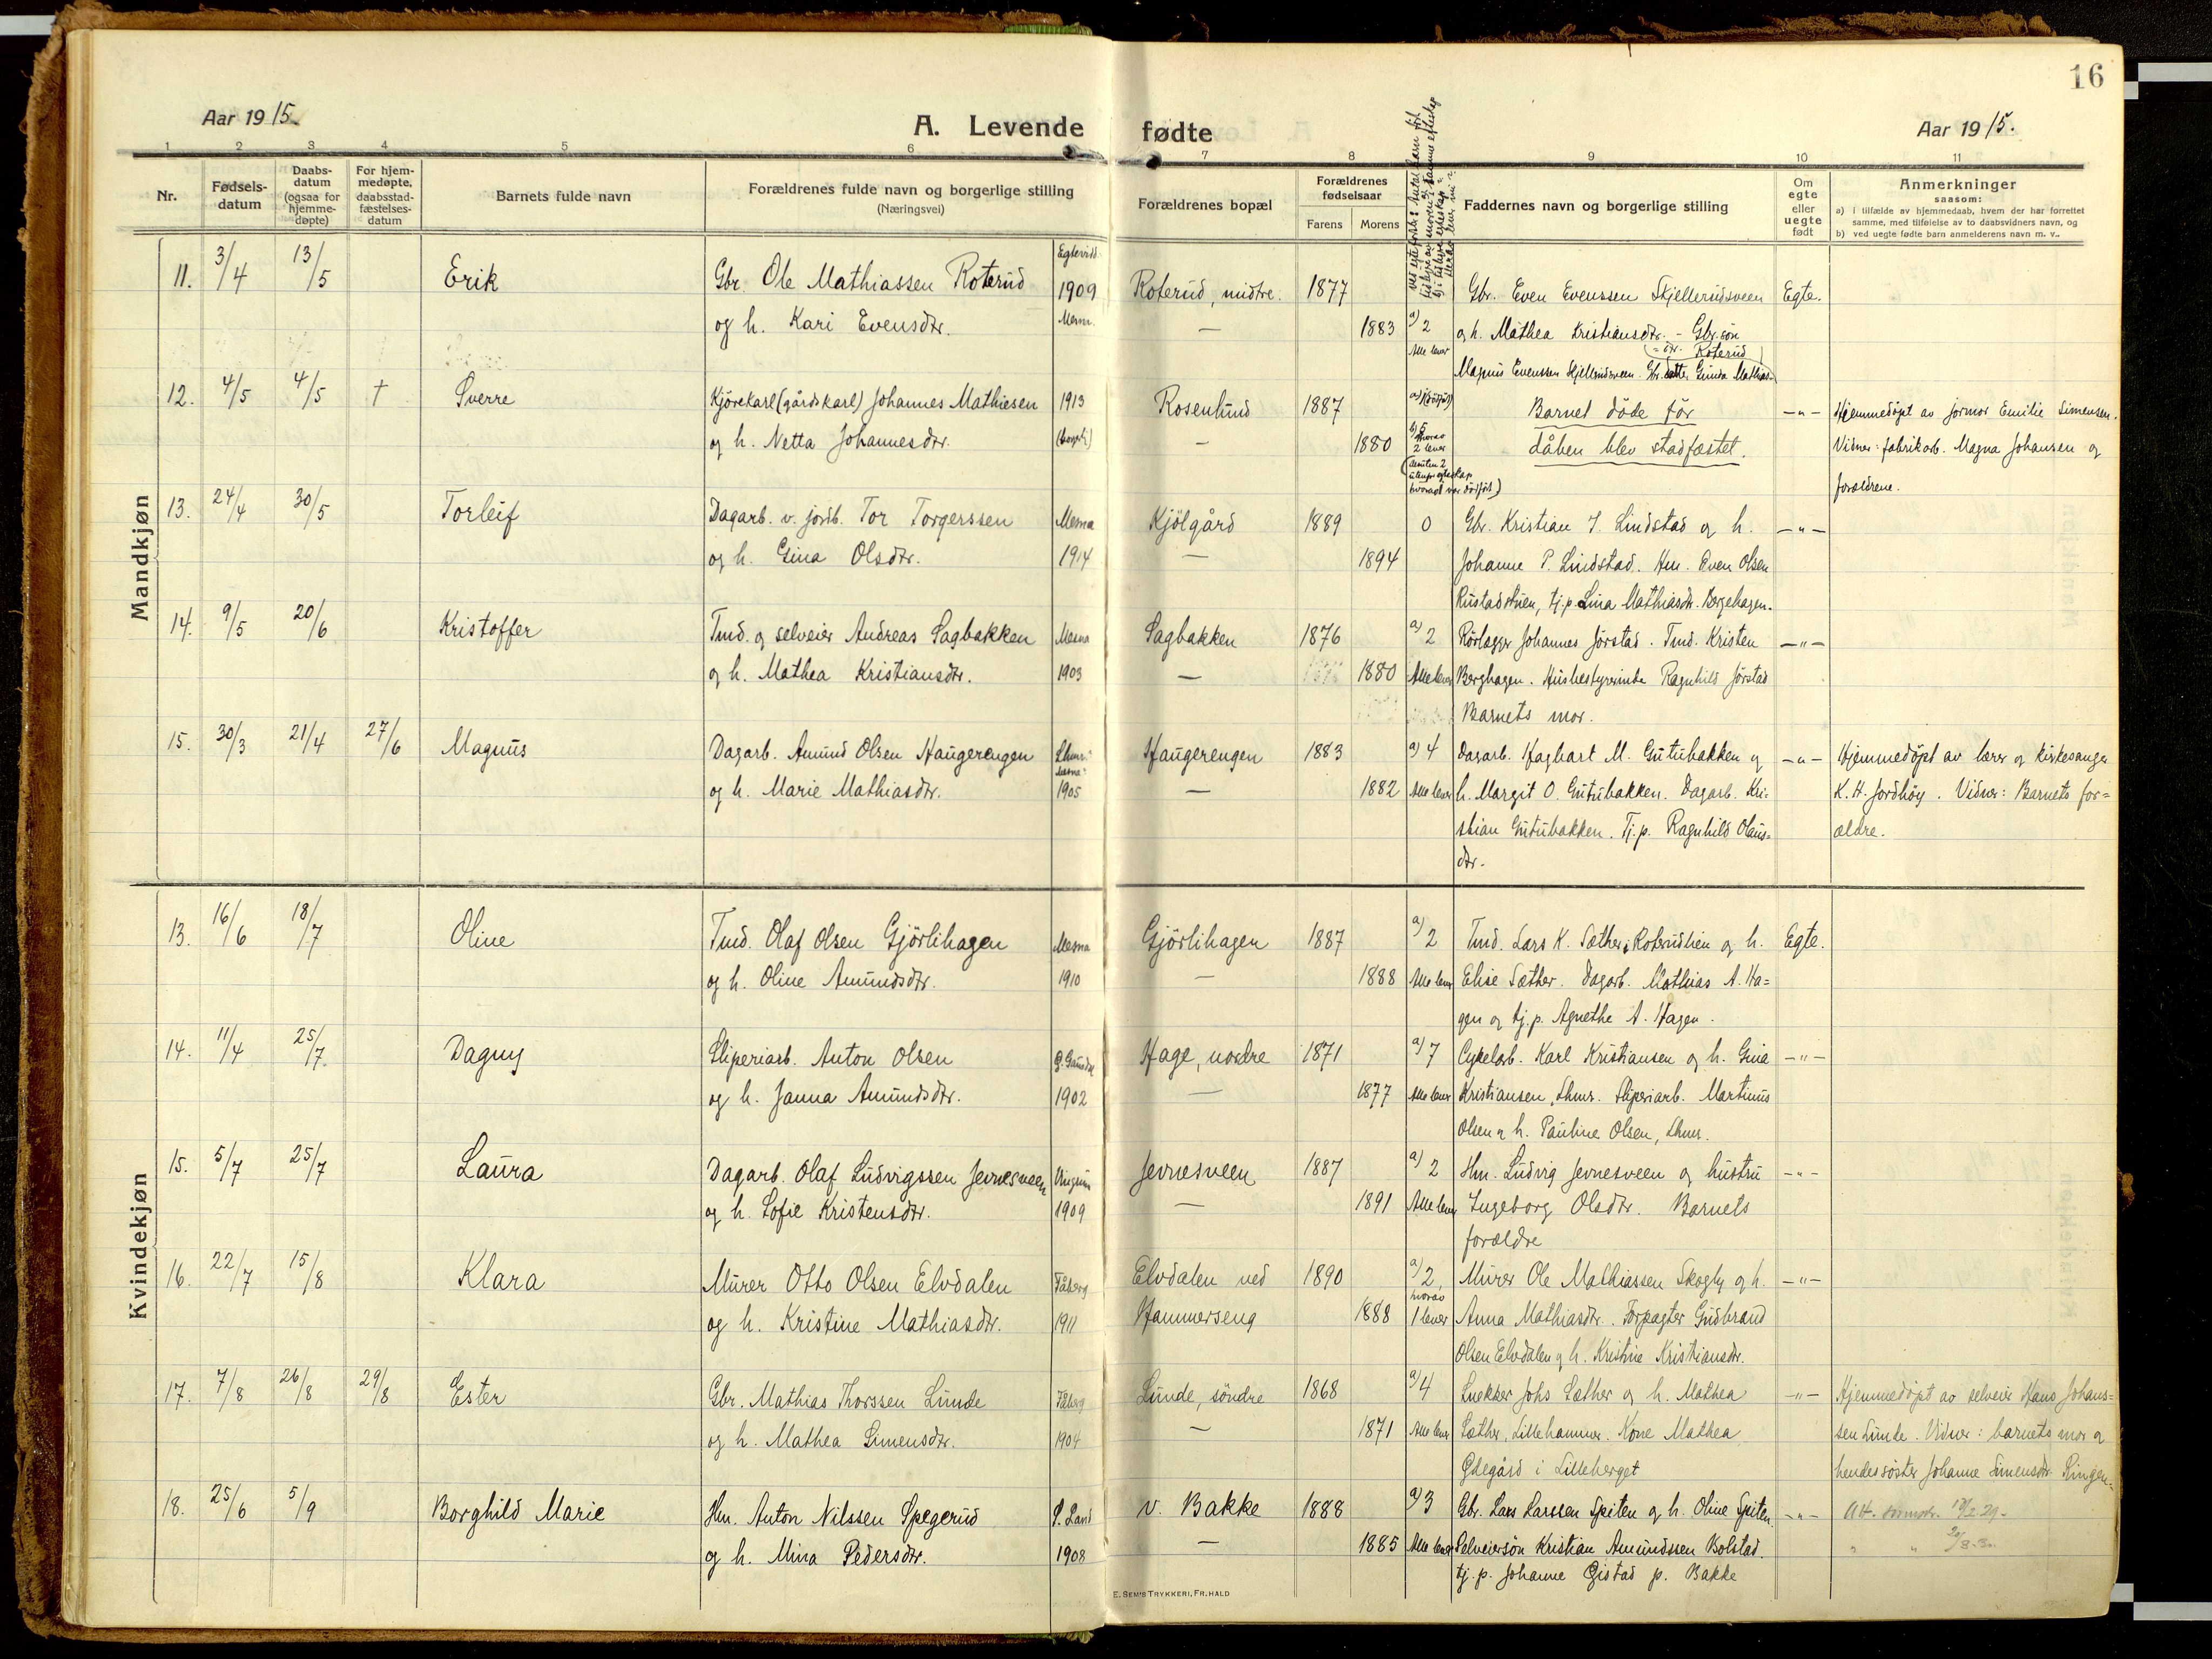 16
Aar 1915.
A. Levende fødte
Aar 1915.
1 2 3 4 5 6 7 8 9 10 11
Nr.
Fødsels-
datum
Daabs-
datum
(ogsaa for
hjemme-
døpte)
For hjem-
medøpte,
daabsstad-
fæstelses-
datum
Barnets fulde navn
Forældrenes fulde navn og borgerlige stilling
(Næringsvei)
Forældrenes bopæl
Forældrenes
fødselsaar
Farens Morens
Faddernes navn og borgerlige stilling
Om
egte
eller
uegte
født
Anmerkninger
saasom:
a) i tilfælde av hjemmedaab, hvem der har forrettet
samme, med tilføielse av to daabsvidners navn, og
b) ved uegte fødte barn anmelderens navn m. v..
Mandkjøn
11. 3/4 13/5 Erik Gbr. Ole Mathiassen Roterud 1909 Roterud, midtre. 1877 Gbr. Even Evenssen Skjellerudsveen Egte.
og h. Kari Evensdtr. Mesna. — 1883 a) 2 og h. Mathea Kristiansdtr. - Gbr.søn
Alle lever Roterud
Magnus Evenssen Skjellerudsveen. Gbr.datter Gunda Mathias-
12. 4/5 4/5 † Sverre Kjørekarl (gårdskarl) Johannes Mathiesen 1913 Rosenlund 1887 Barnet døde før —„— Hjemmedøpt av jormor Emilie Simensen.
og h. Netta Johannesdtr. — 1880 b) 5 hvorav 2 lever dåben blev stadfæstet. Vidner: fabrikarb. Magna Johansen og
forældrene.
13. 24/4 30/5 Torleif Dagarb. v. jordb. Tor Torgerssen Mesna Kjølgård 1889 0 Gbr. Kristian J. Lindstad og h. —„—
og h. Gina Olsdtr. 1914 — 1894 Johanne P. Lindstad. Hm. Even Olsen
Rustadstuen, tj.p. Lina Mathiasdtr. Bergehagen.
14. 9/5 20/6 Kristoffer Tmd. og selveier Andreas Sagbakken Mesna Sagbakken 1876 a) 2 Rørlægger Johannes Jørstad. Tmd. Kristen —„—
og h. Mathea Kristiansdtr. 1903 — 1880 Alle lever Berghagen. Husbestyrerinde Ragnhild Jørstad
Barnets mor.
15. 30/3 21/4 27/6 Magnus Dagarb. Amund Olsen Haugerengen Haugerengen 1883 a) 4 Dagarb. Hagbart M. Gutubakken og —„— Hjemmedøpt av lærer og kirkesanger
og h. Marie Mathiasdtr. 1905 — 1882 Alle lever h. Margit O. Gutubakken. Dagarb. Kri- K. H. Jordhøy. Vidner: Barnets for=
stian Gutubakken. Tj.p. Ragnhild Olaus- ældre.
dtr.
Kvindekjøn
13. 16/6 18/7 Oline Tmd. Olaf Olsen Gjørlihagen Mesna Gjørlihagen 1887 a) 2 Tmd. Lars K. Sæther, Roterudlien og h. Egte.
og h. Oline Amundsdtr. 1910 — 1888 Alle lever Elise Sæther. Dagarb. Mathias A. Ha=
gen og tj.p. Agnethe A. Hagen.
14. 11/4 25/7. Dagny Sliperiarb. Anton Olsen Ø. Gausdal Hage, nordre 1871 a) 7 Cykelarb. Karl Kristiansen og h. Gina —„—
og h. Janna Amundsdtr. 1902 — 1877 Alle lever Kristiansen, Lhmr. Sliperiarb. Martinus
Olsen og h. Pauline Olsen, Lhmr.
15. 5/7 25/7 Laura Dagarb. Olaf Ludvigssen Jevnesveen Vingrom Jevnesveen 1887 a) 2 Hm. Ludvig Jevnesveen og hustru —„—
og h. Sofie Kristensdtr. 1909 — 1891 Alle lever Ingeborg Olsdtr. Barnets
forældre
16. 22/7 15/8 Klara Murer Otto Olsen Elvdalen Fåberg Elvdalen ved 1890 a) 2, Murer Ole Mathiassen Skogly og h. —„—
og h. Kristine Mathiasdtr. 1911 Hammerseng 1888 hvorav 1 lever Anna Mathiasdtr. Forpagter Gudbrand
Olsen Elvdalen og h. Kristine Kristiansdtr.
17. 7/8 26/8 29/8 Ester Gbr. Mathias Thorssen Lunde Fåberg Lunde, søndre 1868 a) 4 Snekker Johs Sæther og h. Mathea —„— Hjemmedøpt av selveier Hans Johans=
og h. Mathea Simensdtr. 1904 — 1871 Alle lever Sæther, Lillehammer. Kone Mathea sen Lunde. Vidner: barnets mor og
Ødegård i Lilleberget hendes søster Johanne Simensdtr. Ringen.
18. 25/6 5/9 Borghild Marie Hm. Anton Nilssen Spegerud S. Land v. Bakke 1888 a) 3 Gbr. Lars Larssen Spiten og h. Oline Spiten. —„—
og h. Mina Pedersdtr. 1908 — 1885 Alle lever Selveiersøn Kristian Amundssen Bolstad.
tj.p. Johanne Gistad p. Bakke
E. SEM'S TRYKKERI, FR.HALD